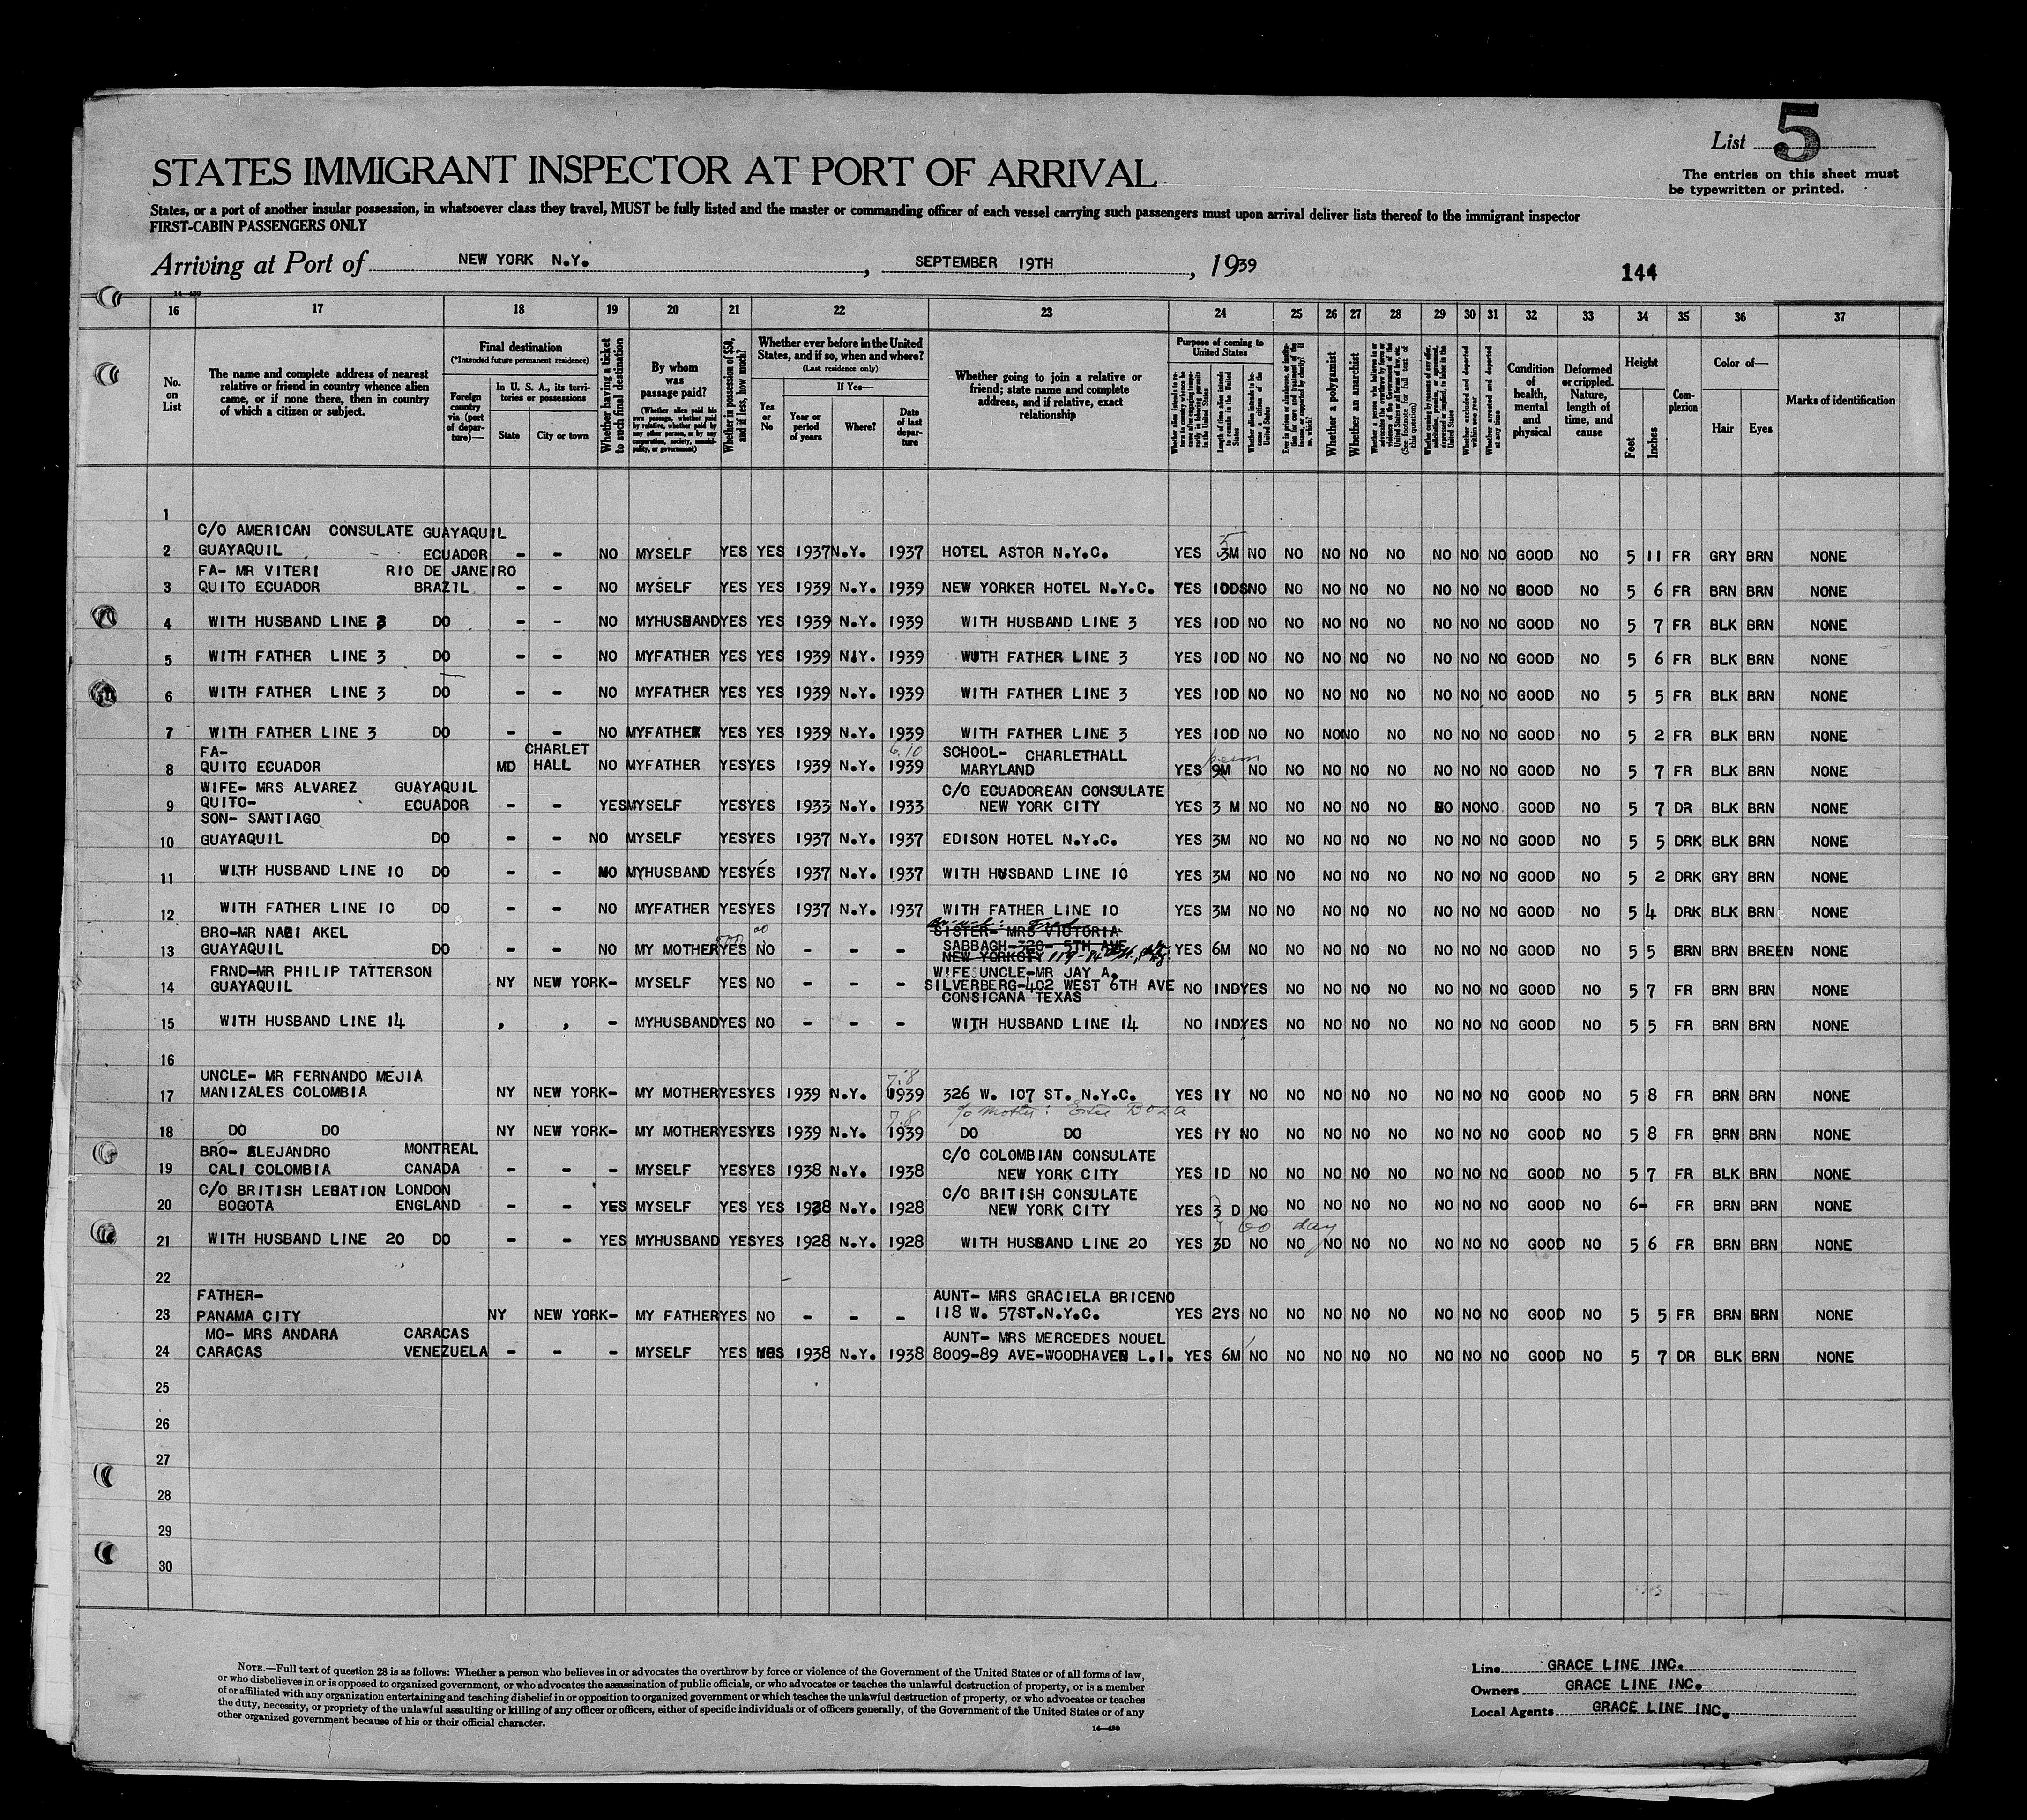 List 5
The entries on this sheet must
be typewritten or printed.
STATES IMMIGRANT INSPECTOR AT PORT OF ARRIVAL
States, or a port of another insular possession, in whatsoever class they travel, MUST be fully listed and the master or commanding officer of each vessel carrying such passengers must upon arrival deliver lists thereof to the immigrant inspector
FIRST-CABIN PASSENGERS ONLY
Arriving at Port of NEW YORK N.Y. , SEPTEMBER 19TH , 1939
144
14-430
16 17 18 19 20 21 22 23 24 25 26 27 28 29 30 31 32 33 34 35 36 37
No. on List
The name and complete address of nearest relative or friend in country whence alien came, or if none there, then in country of which a citizen or subject.
Final destination
(*Intended future permanent residence)
Foreign country via (port of departure)—
In U. S. A., its territories or possessions
State
City or town
Whether having a ticket to such final destination
By whom was passage paid?
(Whether alien paid his own passage, whether paid by relative, whether paid by any other person, or by any corporation, society, municipality, or government)
Whether in possession of $50, and if less, how much?
Whether ever before in the United States, and if so, when and where?
(Last residence only)
Yes or No
If Yes—
Year or period of years
Where?
Date of last departure
Whether going to join a relative or friend; state name and complete address, and if relative, exact relationship
Purpose of coming to United States
Length of time alien intends to remain in the United States
Whether alien intends to become a citizen of the United States
Whether a polygamist
Whether an anarchist
Whether excluded and deported within one year
Whether arrested and deported at any time
Condition of health, mental and physical
Deformed or crippled. Nature, length of time, and cause
Height
Feet
Inches
Complexion
Color of—
Hair
Eyes
Marks of identification
1
C/O AMERICAN CONSULATE GUAYAQUIL
2 GUAYAQUIL ECUADOR - - NO MYSELF YES YES 1937 N.Y. 1937 HOTEL ASTOR N.Y.C. YES 3M 5 NO NO NO NO NO NO NO NO GOOD NO 5 11 FR GRY BRN NONE
FA- MR VITERI RIO DE JANEIRO
3 QUITO ECUADOR BRAZIL - - NO MYSELF YES YES 1939 N.Y. 1939 NEW YORKER HOTEL N.Y.C. YES 10DS NO NO NO NO NO NO NO NO GOOD NO 5 6 FR BRN BRN NONE
4 WITH HUSBAND LINE 3 DO - - NO MYHUSBAND YES YES 1939 N.Y. 1939 WITH HUSBAND LINE 3 YES 10D NO NO NO NO NO NO NO NO GOOD NO 5 7 FR BLK BRN NONE
5 WITH FATHER LINE 3 DO - - NO MYFATHER YES YES 1939 N.Y. 1939 WUTH FATHER LINE 3 YES 10D NO NO NO NO NO NO NO NO GOOD NO 5 6 FR BLK BRN NONE
6 WITH FATHER LINE 3 DO - - NO MYFATHER YES YES 1939 N.Y. 1939 WITH FATHER LINE 3 YES 10D NO NO NO NO NO NO NO NO GOOD NO 5 5 FR BLK BRN NONE
7 WITH FATHER LINE 3 DO - - NO MYFATHER YES YES 1939 N.Y. 1939 WITH FATHER LINE 3 YES 10D NO NO NO NO NO NO NO NO GOOD NO 5 2 FR BLK BRN NONE
FA- CHARLET 6.10 SCHOOL- CHARLETHALL
8 QUITO ECUADOR MD HALL NO MYFATHER YES YES 1939 N.Y. 1939 MARYLAND YES 9M NO NO NO NO NO NO NO NO GOOD NO 5 7 FR BLK BRN NONE
WIFE- MRS ALVAREZ GUAYAQUIL C/O ECUADOREAN CONSULATE
9 QUITO- ECUADOR - - YES MYSELF YES YES 1933 N.Y. 1933 NEW YORK CITY YES 3 M NO NO NO NO NO NO NO NO GOOD NO 5 7 DR BLK BRN NONE
SON- SANTIAGO
10 GUAYAQUIL DO - - NO MYSELF YES YES 1937 N.Y. 1937 EDISON HOTEL N.Y.C. YES 3M NO NO NO NO NO NO NO NO GOOD NO 5 5 DRK BLK BRN NONE
11 WITH HUSBAND LINE 10 DO - - NO MYHUSBAND YES YES 1937 N.Y. 1937 WITH HUSBAND LINE 10 YES 3M NO NO NO NO NO NO NO NO GOOD NO 5 2 DRK GRY BRN NONE
12 WITH FATHER LINE 10 DO - - NO MYFATHER YES YES 1937 N.Y. 1937 WITH FATHER LINE 10 YES 3M NO NO NO NO NO NO NO NO GOOD NO 5 4 DRK BLK BRN NONE
BRO-MR NABI AKEL SISTER- MRS VICTORIA
13 GUAYAQUIL DO - - NO MY MOTHER YES NO - - - SABBAGH-320- 5TH AVE YES 6M NO NO NO NO NO NO NO NO GOOD NO 5 5 BRN BRN BREEN NONE
NEW YORKCITY
FRND-MR PHILIP TATTERSON WIFES UNCLE-MR JAY A.
14 GUAYAQUIL NY NEW YORK- MYSELF YES NO - - - SILVERBERG-402 WEST 6TH AVE NO IND YES NO NO NO NO NO NO NO GOOD NO 5 7 FR BRN BRN NONE
CONSICANA TEXAS
15 WITH HUSBAND LINE 14 , , - MYHUSBAND YES NO - - - WITH HUSBAND LINE 14 NO IND YES NO NO NO NO NO NO NO GOOD NO 5 5 FR BRN BRN NONE
16
UNCLE- MR FERNANDO MEJIA 7.8
17 MANIZALES COLOMBIA NY NEW YORK- MY MOTHER YES YES 1939 N.Y. 1939 326 W. 107 ST. N.Y.C. YES 1Y NO NO NO NO NO NO NO NO GOOD NO 5 8 FR BRN BRN NONE
7.8
18 DO DO NY NEW YORK- MY MOTHER YES YES 1939 N.Y. 1939 DO DO YES 1Y NO NO NO NO NO NO NO NO GOOD NO 5 8 FR BRN BRN NONE
BRO- ALEJANDRO MONTREAL C/O COLOMBIAN CONSULATE
19 CALI COLOMBIA CANADA - - - MYSELF YES YES 1938 N.Y. 1938 NEW YORK CITY YES 1D NO NO NO NO NO NO NO NO GOOD NO 5 7 FR BLK BRN NONE
C/O BRITISH LEGATION LONDON C/O BRITISH CONSULATE
20 BOGOTA ENGLAND - - YES MYSELF YES YES 1928 N.Y. 1928 NEW YORK CITY YES 3 D NO NO NO NO NO NO NO NO GOOD NO 6- FR BRN BRN NONE
60 day
21 WITH HUSBAND LINE 20 DO - - YES MYHUSBAND YES YES 1928 N.Y. 1928 WITH HUSBAND LINE 20 YES 3D NO NO NO NO NO NO NO NO GOOD NO 5 6 FR BRN BRN NONE
22
FATHER- AUNT- MRS GRACIELA BRICENO
23 PANAMA CITY NY NEW YORK- MY FATHER YES NO - - - 118 W. 57ST.N.Y.C. YES 2YS NO NO NO NO NO NO NO NO GOOD NO 5 5 FR BRN BRN NONE
MO- MRS ANDARA CARACAS AUNT- MRS MERCEDES NOUEL
24 CARACAS VENEZUELA - - - MYSELF YES YES 1938 N.Y. 1938 8009-89 AVE-WOODHAVEN L.I. YES 6M NO NO NO NO NO NO NO NO GOOD NO 5 7 DR BLK BRN NONE
25
26
27
28
29
30
NOTE.—Full text of question 28 is as follows: Whether a person who believes in or advocates the overthrow by force or violence of the Government of the United States or of all forms of law,
or who disbelieves in or is opposed to organized government, or who advocates the assassination of public officials, or who advocates or teaches the unlawful destruction of property, or is a member
of or affiliated with any organization entertaining and teaching disbelief in or opposition to organized government or which teaches the unlawful destruction of property, or who advocates or teaches
the duty, necessity, or propriety of the unlawful assaulting or killing of any officer or officers, either of specific individuals or of officers generally, of the Government of the United States or of any
other organized government because of his or their official character.
14-430
Line GRACE LINE INC.
Owners GRACE LINE INC.
Local Agents GRACE LINE INC.